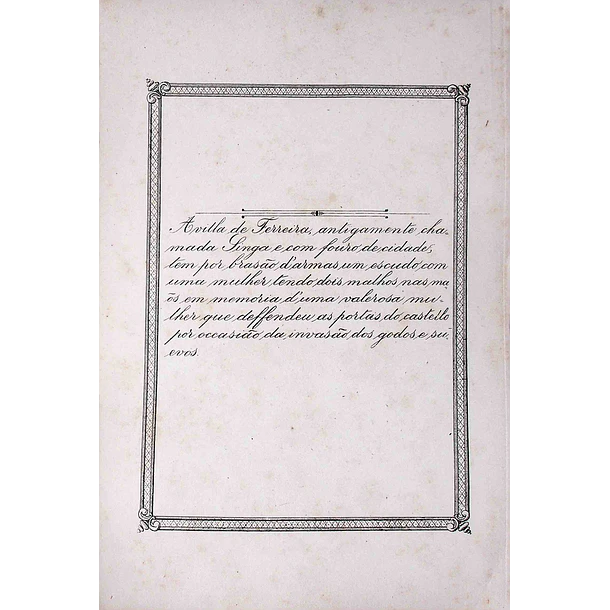 A villa de Ferreira, antigamente cha-
mada Singa e com fouro, de cidade,
tem por brasão d'armas, um escudo, com
uma mulher, tendo, dois malhos, nas ma
ōs, em memoria d'uma valerosa mu-
lher que deffendeu, as portas, do, castello
por, occasião, da invasão, dos godos, e su-
evos.